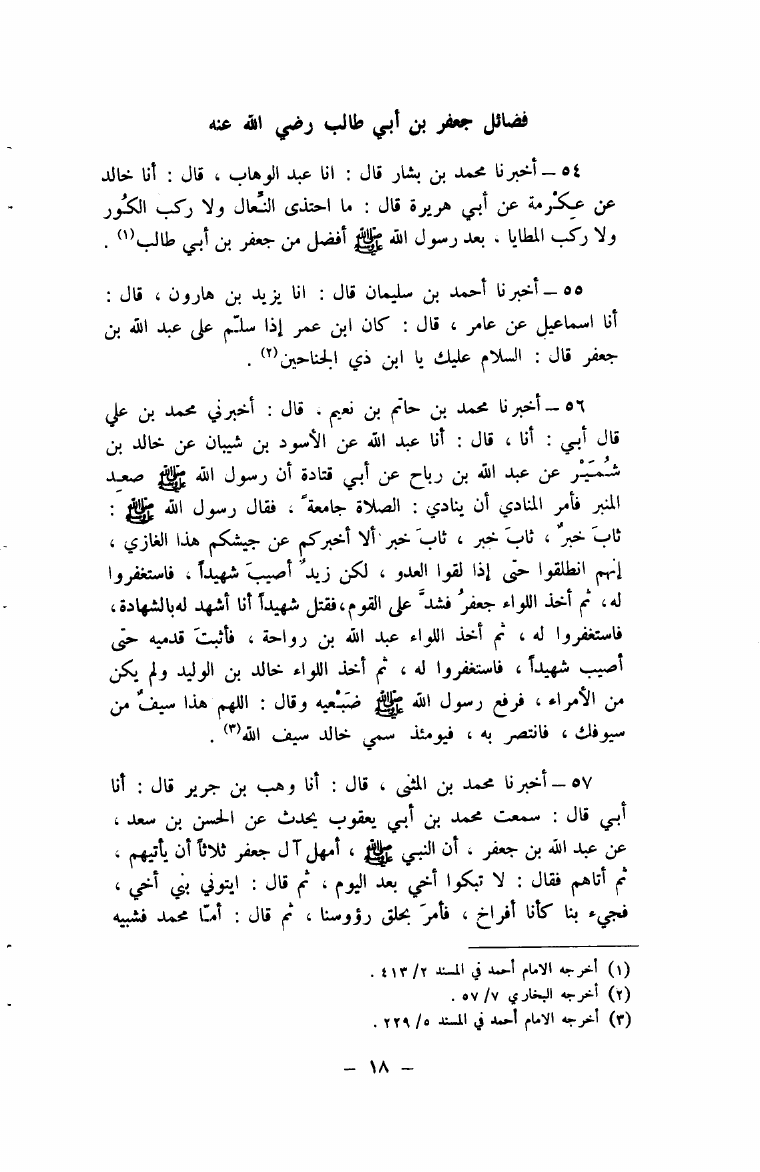 فضائل جعفر بن أبي طالب رضي الله عنه
٥٤ – أخبرنا محمد بن بشار قال : انا عبد الوهاب ، قال : أنا خالد
عن عِكْرمة عن أبي هريرة قال : ما احتذى النِّعال ولا ركب الكُور
ولا ركب المطايا ، بعد رسول الله ﷺ أفضل من جعفر بن أبي طالب(١) .
٥٥ – أخبرنا أحمد بن سليمان قال : انا يزيد بن هارون ، قال :
أنا اسماعيل عن عامر ، قال : كان ابن عمر إذا سلّم على عبد الله بن
جعفر قال : السلام عليك يا ابن ذي الجناحين(٢) .
٥٦ – أخبرنا محمد بن حاتم بن نعيم . قال : أخبرني محمد بن علي
قال أبي : أنا ، قال : أنا عبد الله عن الأسود بن شيبان عن خالد بن
شُمَيْر عن عبد الله بن رباح عن أبي قتادة أن رسول الله ﷺ صعِد
المنبر فأمر المنادي أن ينادي : الصلاة جامعةً ، فقال رسول الله ﷺ :
ثابَ خبرٌ ، ثابَ خبر ، ثابَ خبر ألا أخبركم عن جيشكم هذا الغازي ،
إنهم انطلقوا حتى إذا لقوا العدو ، لكن زيدٌ أصيبَ شهيداً ، فاستغفروا
له، ثم أخذ اللواء جعفرُ فشدَّ على القوم،فقتل شهيداً أنا أشهد له‌بالشهادة،
فاستغفروا له ، ثم أخذ اللواء عبد الله بن رواحة ، فأثبتَ قدميه حتى
أصيب شهيداً ، فاستغفروا له ، ثم أخذ اللواء خالد بن الوليد ولم يكن
من الأمراء ، فرفع رسول الله ﷺ ضَبْعيه وقال : اللهم هذا سيفٌ من
سيوفك ، فانتصر به ، فيومئذ سمي خالد سيف الله(٣) .
٥٧ – أخبرنا محمد بن المثنى ، قال : أنا وهب بن جرير قال : أنا
أبي قال : سمعت محمد بن أبي يعقوب يحدث عن الحسن بن سعد ،
عن عبد الله بن جعفر . أن النبي ﷺ ، أمهل آل جعفر ثلاثاً أن يأتيهم ،
ثم أتاهم فقال : لا تبكوا أخي بعد اليوم ، ثم قال : ايتوني بني أخي ،
فجيء بنا كأنا أفراخ ، فأمرَ بحلق رؤوسنا ، ثم قال : أمّا محمد فشبيه
(١) أخرجه الامام أحمد في المسند ٢/ ٤١٣ .
(٢) أخرجه البخاري ٧/ ٥٧ .
(٣) أخرجه الامام أحمد في المسند ٥/ ٢٢٩ .
– ١٨ –